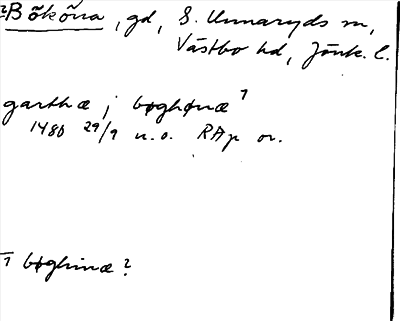 ?Bököna, gd, S. Unnaryds sn,
Västbo hd, Jönk. l.
garthæ j bøghønæ¹
1480 29/9 u.o. RAp or.
¹ bøghinæ?